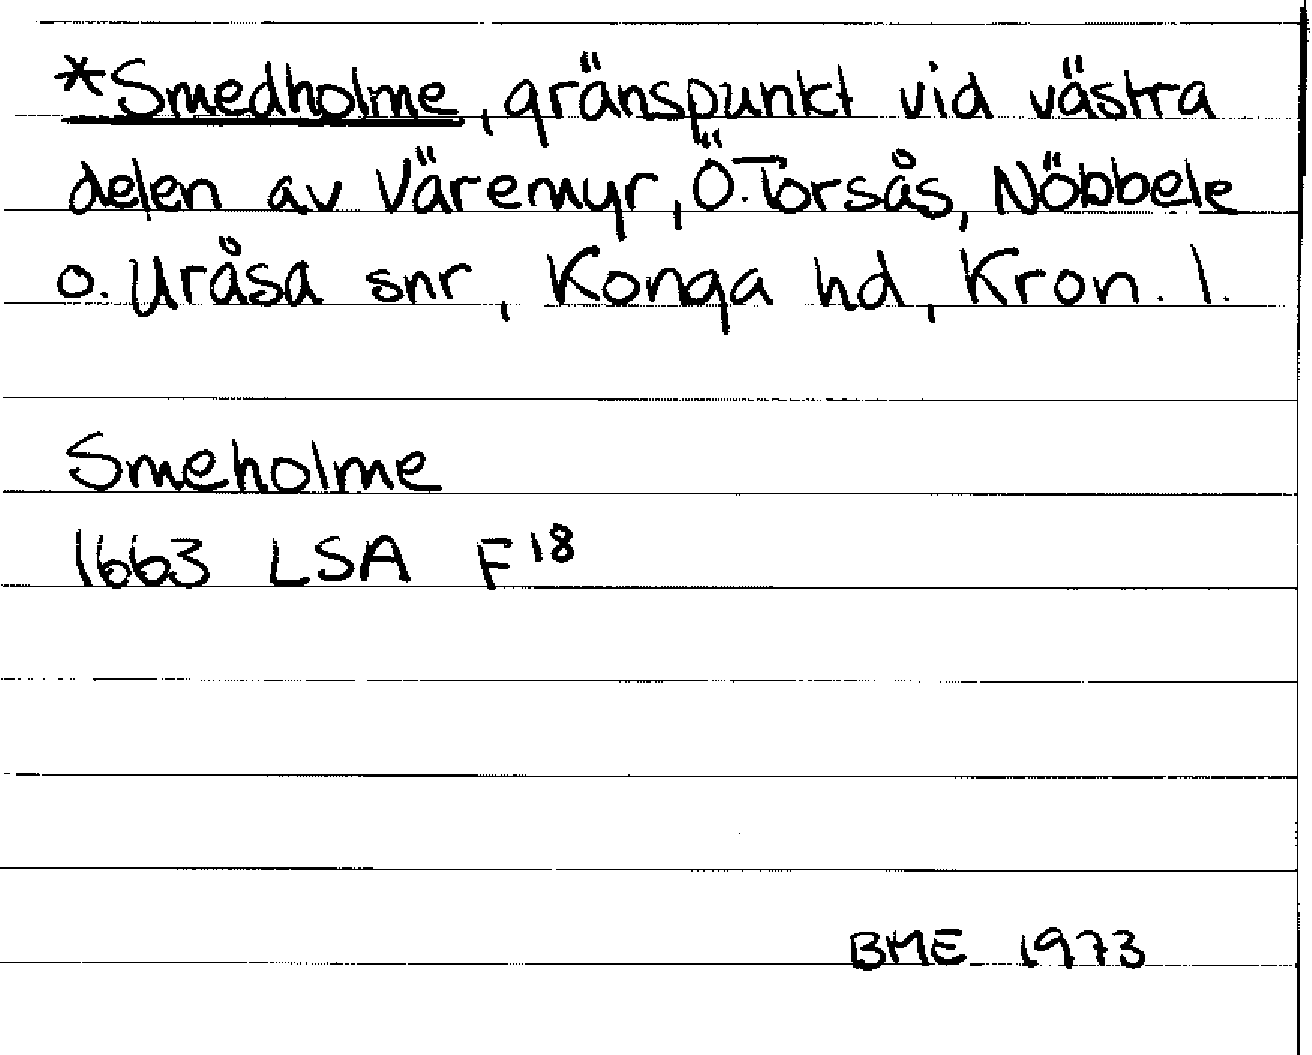 *Smedholme, gränspunkt vid västra
delen av Väremyr, Ö. Torsås, Nöbbele
o. Uråsa snr, Konga hd, Kron. l.
Smeholme
1663 LSA F18
BME 1973